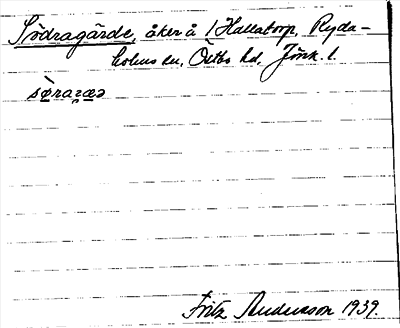 Södragärde, åker å 1 Hallatorp, Ryda-
holms sn, Östbo hd, Jönk. l.
sø̀raɼæə
Fritz Andersson 1939.